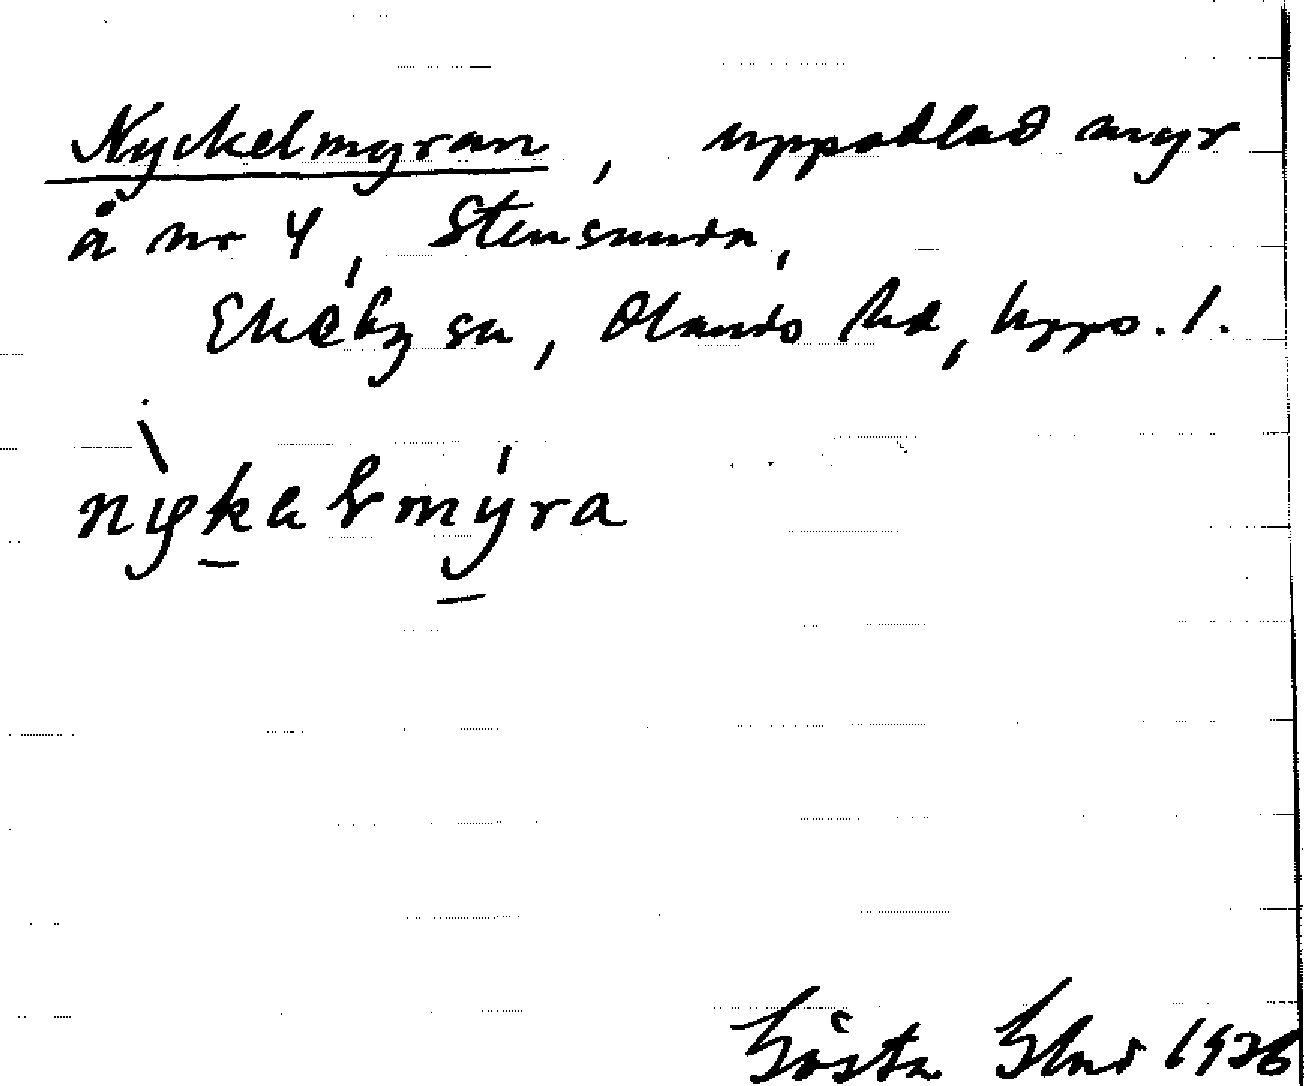 Nyckelmyran, uppodlad myr
å nr 4, Stensunda,
Ekeby sn, Olands hd, Upps. l.
nỳkalmýra
Gösta 1936